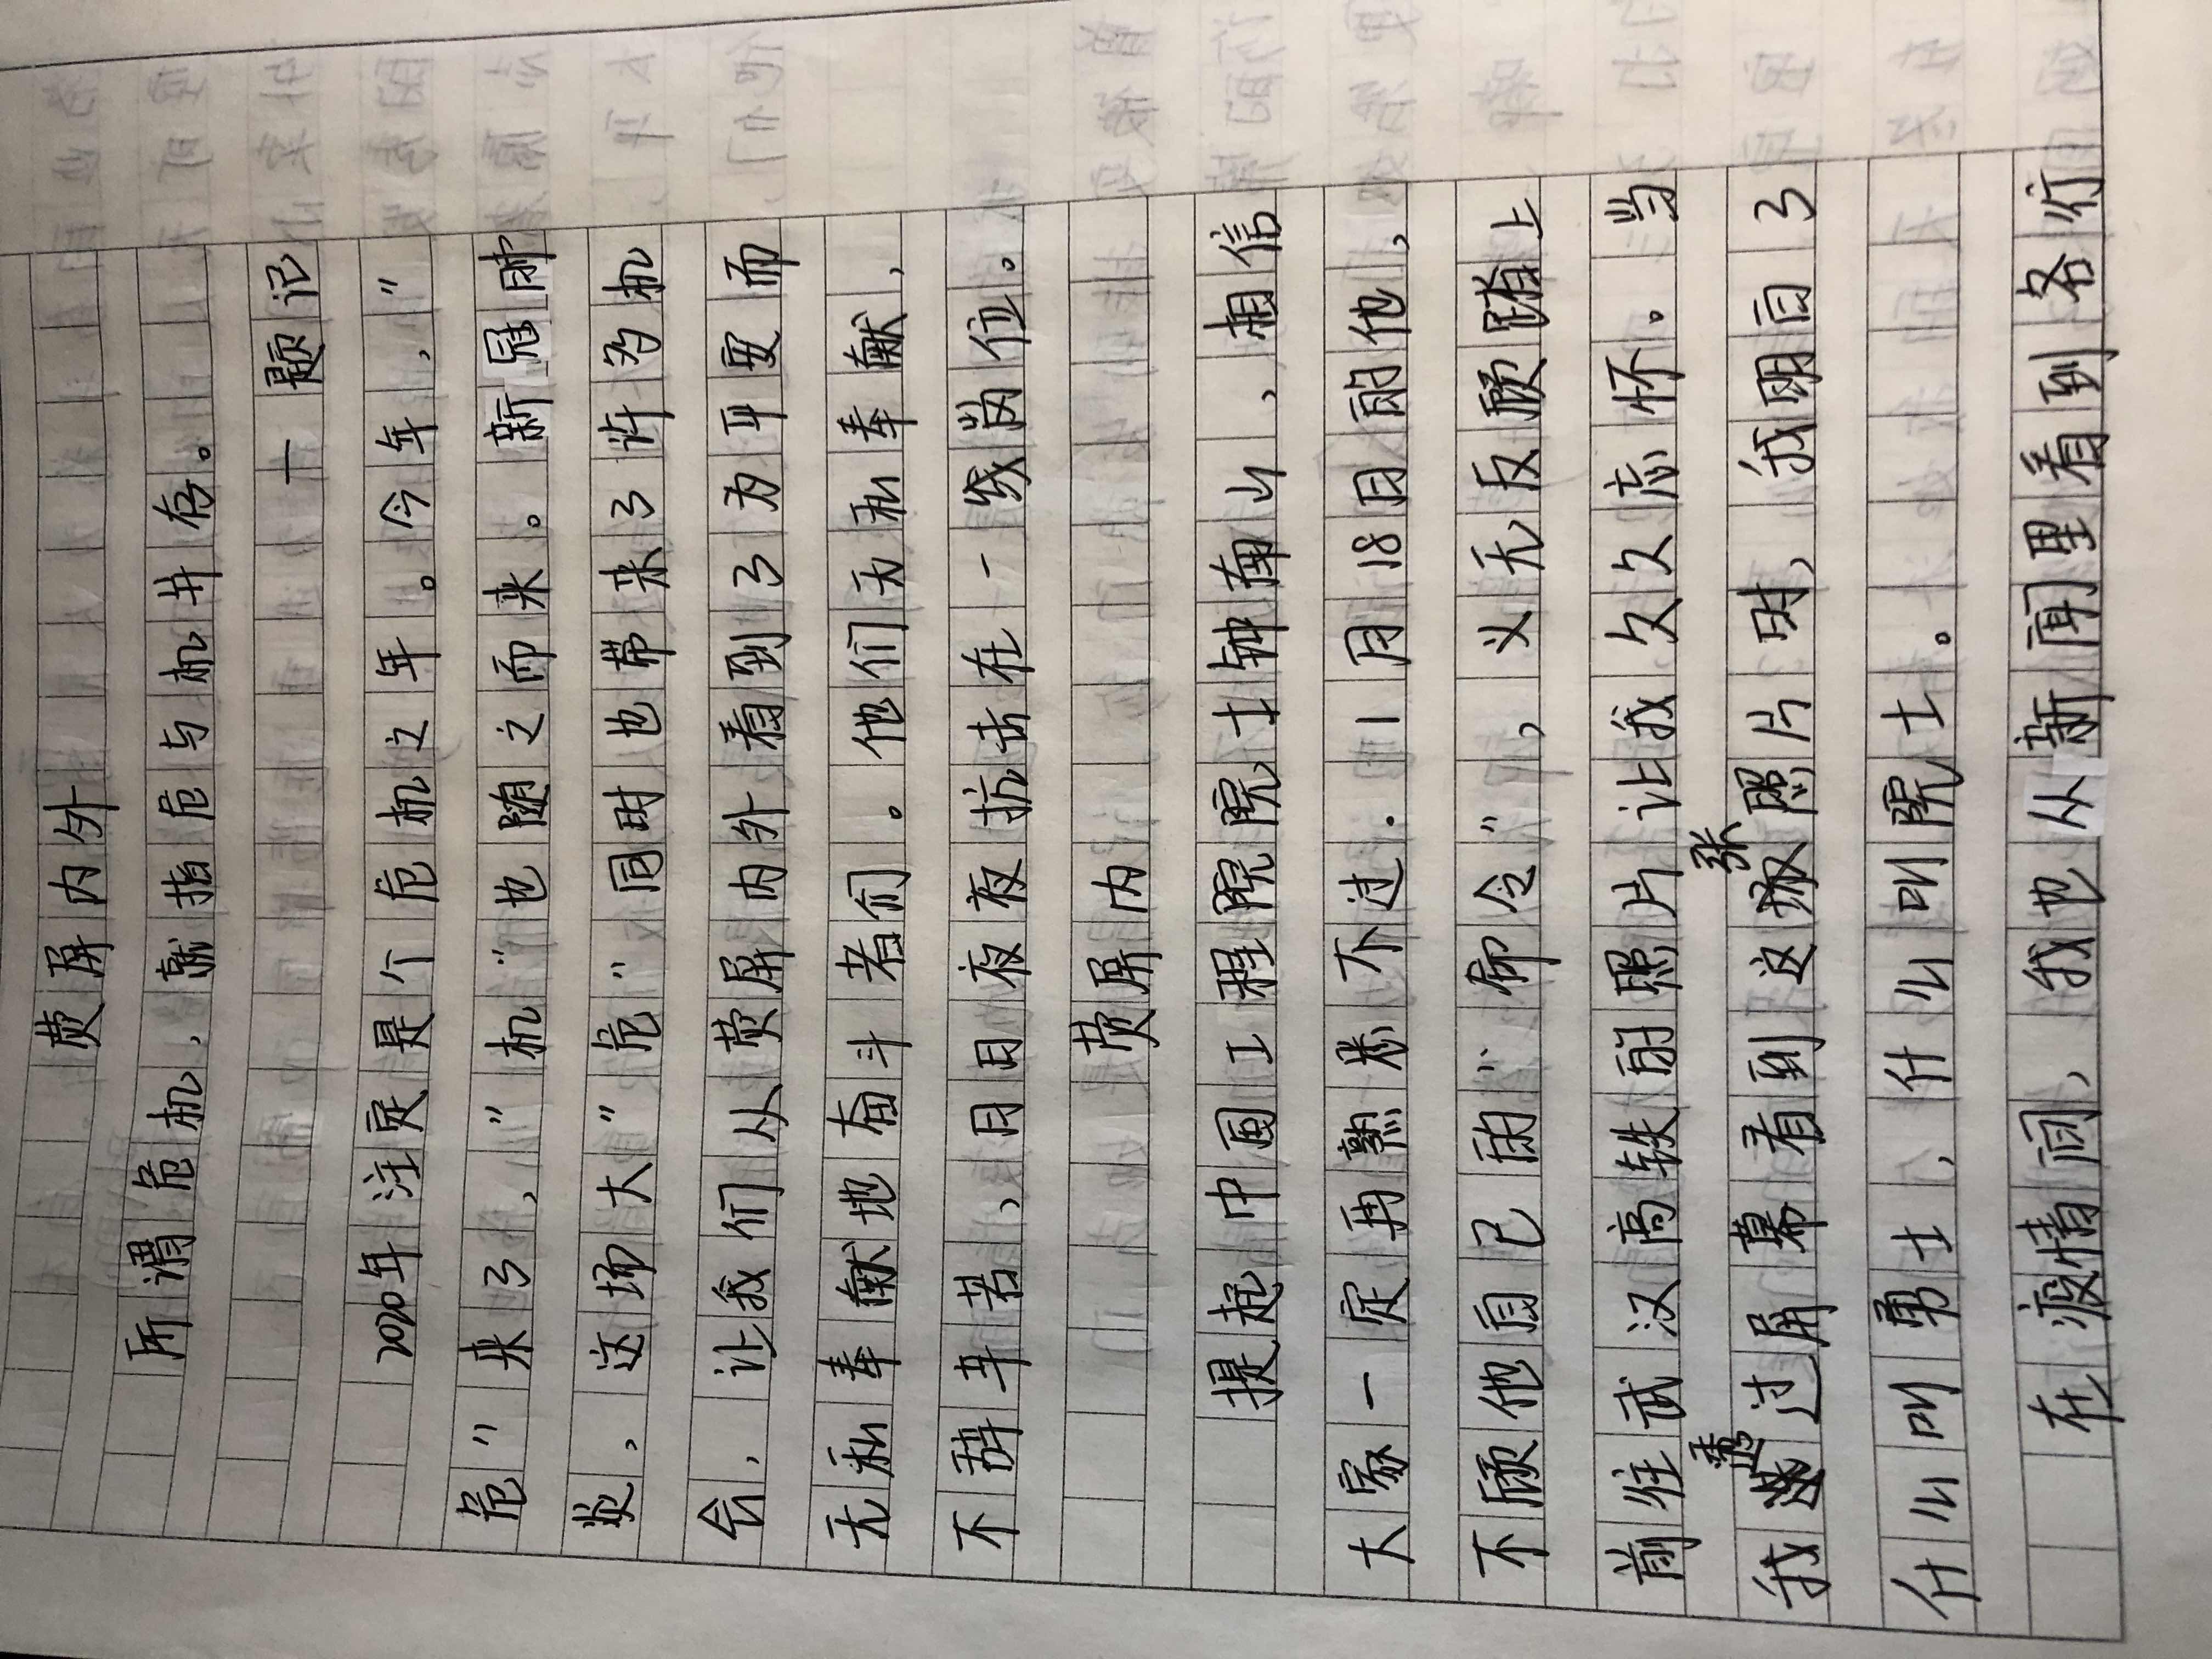 荧屏内外
所谓危机，就指危与机并存。
一题记
2020年注定是个危机之年。今年，"
危"来了，"机"也随之而来。新冠肺
炎，这场大"危"同时也带来了许多机
会，让我们从荧屏内外看到了为平安而
无私奉献地奋斗者们。他们无私奉献，
不辞辛苦，日日夜夜抗击在一线岗位。
荧屏内
提起中国工程院院士钟南山，相信
大家一定再熟悉不过.1月18日的他，
不顾他自己的"命令"，义无反顾踏上
前往武汉高铁的照片让我久久忘怀。当
我透过屏幕看到这张照片时，我明白了
什么叫勇士，什么叫院士。
在疫情间，我也从新闻里看到各行